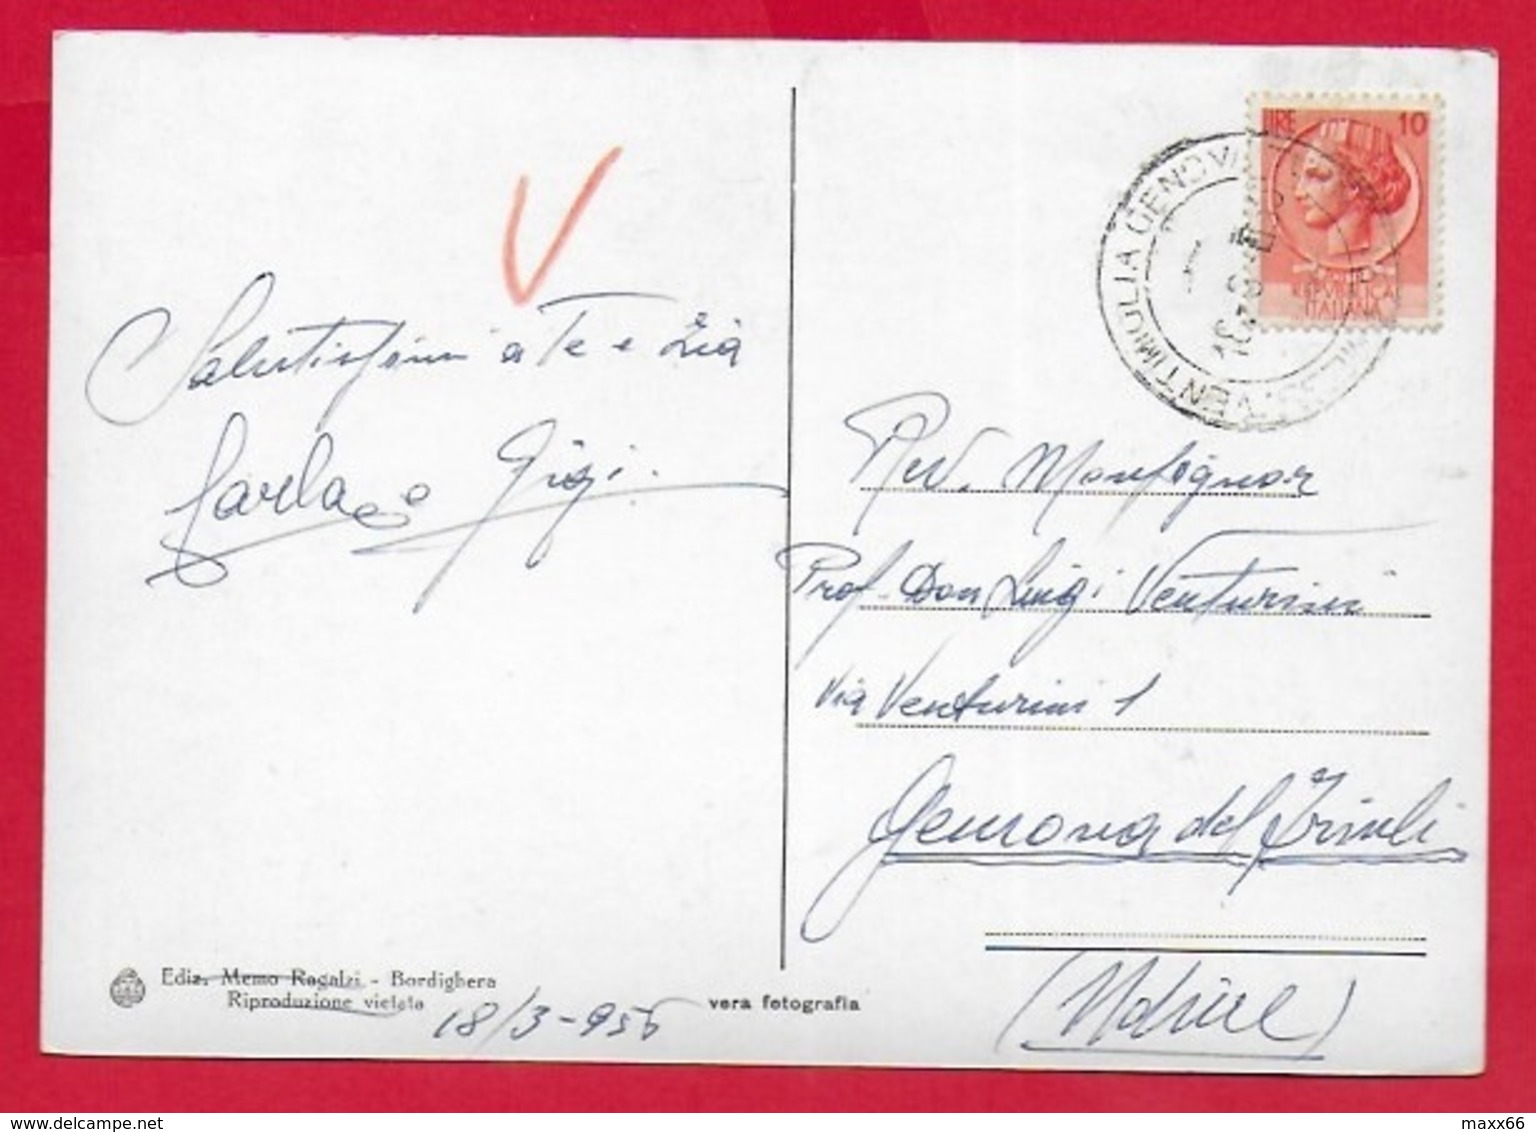 V
Salutissimi a Te e Zia
Carla e Gigi.
LIRE 10
REPUBBLICA
ITALIANA
VENTIMIGLIA GENOVA
Rev. Monsignor
Prof. Don Luigi Venturini
Via Venturini 1
Gemona del Friuli
(Udine)
Ediz. Memo Ragalzi - Bordighera
Riproduzione vietata
18/3-956
vera fotografia
delcampe.net
maxx66